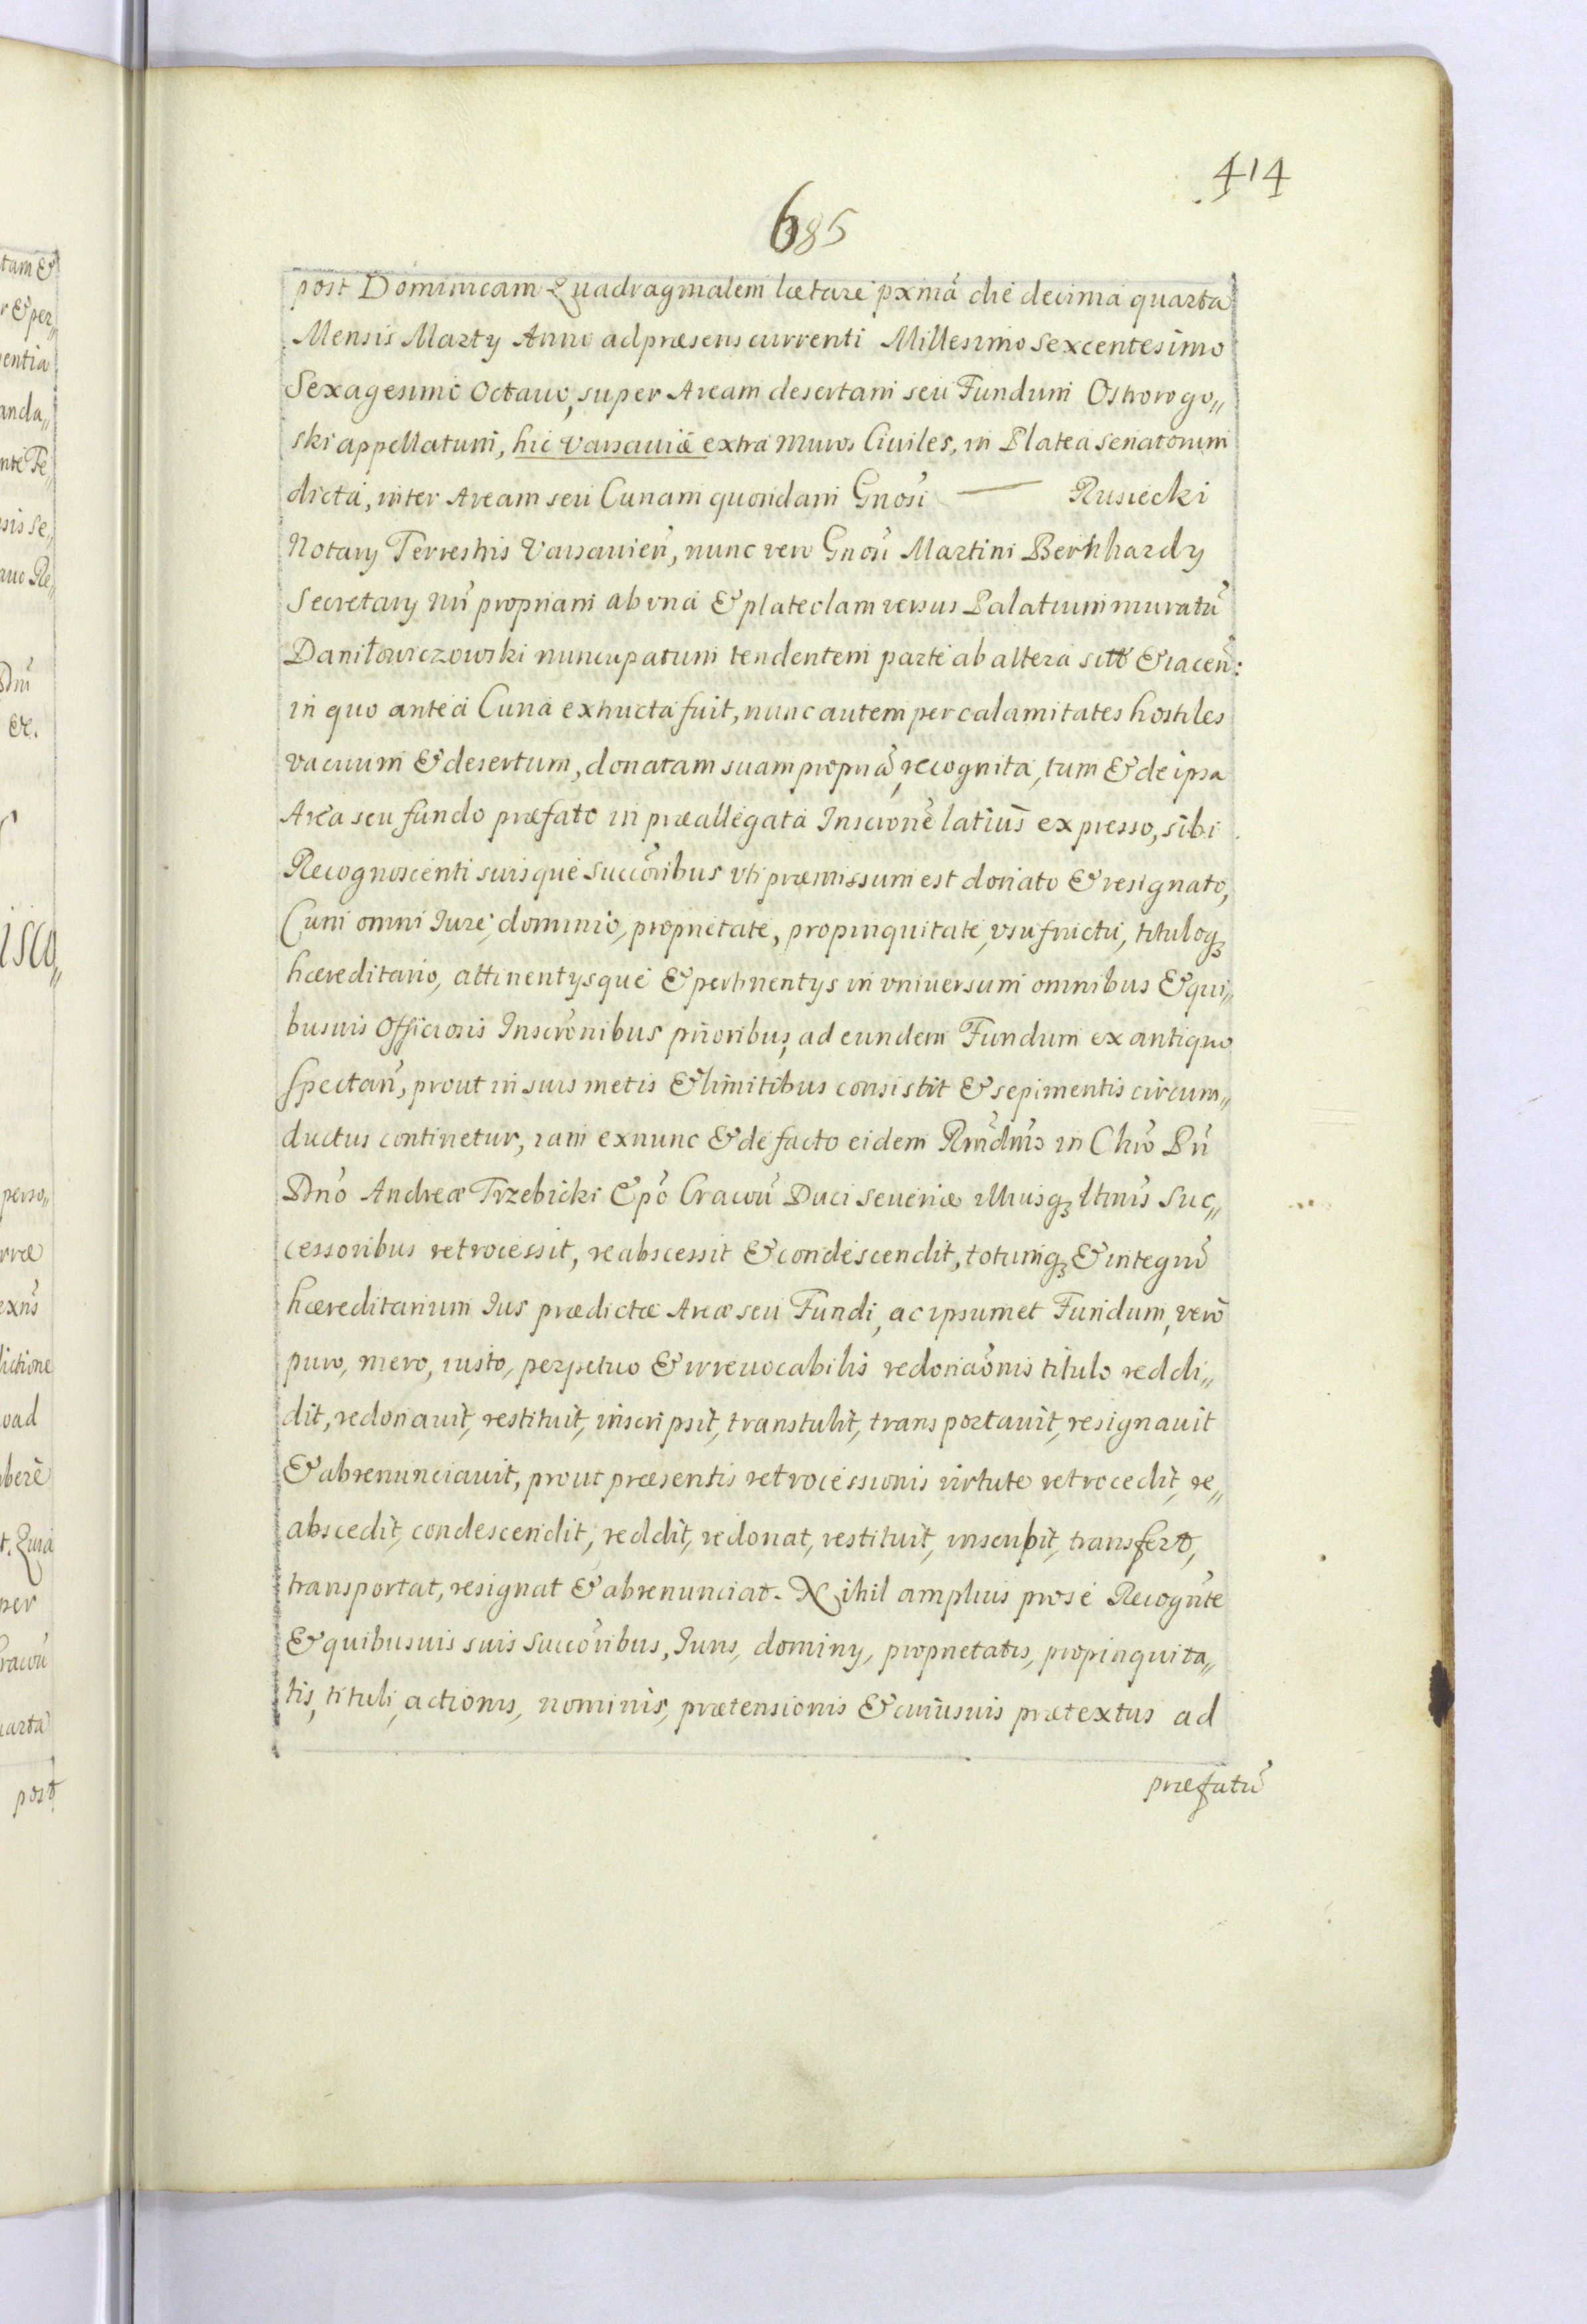 414
685
post Dominicam Quadragmalem lætare pxmã die decima quarta
Mensis Marty Anno ad præsens currenti Millesimo Sexcentesimo
Sexagesimo Octauo, super Aream desertam seu Fundum Ostrorogo„
ski appellatum, hic Varsauiæ extra Muros Ciuiles, in Platea senatorum
dicta, inter Aream seu Curiam quondam Gnosi — Rusiecki
Notary Terrestris Varsauieñ, nunc vero Gnosi Martini Bernhardy
Secretary Nri propriam ab vna & plateolam versus Palatium muratũ
Daniłowiczowski nuncupatum tendentem parte ab altera sitt & iaceñ:
in quo antea Curia extructa fuit, nunc autem per calamitates hostiles
vacuum & desertum, donatam suam propriã, recognita, tum & de ipsa
Area seu fundo præfato in præallegata Inscrione latius expresso, sibi
Recognoscenti suisque Succõribus vti præmissum est donato & resignato,
Cum omni Iure, dominio, proprietate, propinquitate, vsufructu, tituloq3
hæreditario, attinentysque & pertinentys in vniuersum omnibus & qui„
busuis Officiosis Inscrõnibus prioribus, ad eundem Fundum ex antiquo
spectañ, prout in suis metis & limitibus consistit & sepimentis circum„
ductus continetur, iam exnunc & de facto eidem Rmdmo in Chro Pri
Dño Andreæ Trzebicki Epõ Cracoũ Duci Seueriæ illiusq3 ltmis Suc„
cessoribus retrocessit, reabscessit & condescendit, totumq3 & integrũ
hæreditarium Ius prædictæ Areæ seu Fundi, ac ipsumet Fundum, vero
puro, mero, iusto, perpetuo & irreuocabilis redonaõnis titulo reddi„
dit, redonauit, restituit, inscripsit, transtulit, transportauit, resignauit
& abrenunciauit, prout præsentis retrocessionis virtute retrocedit, re„
abscedit, condescendit, reddit, redonat, restituit, inscribit, transfert,
transportat, resignat & abrenunciat. Nihil amplius pro se Recognte
& quibusuis suis Succõribus, Iuris, dominy, proprietatis, propinquita„
tis, tituli, actionis, nominis, prætensionis & cuiusuis prætextus ad
præfatũ